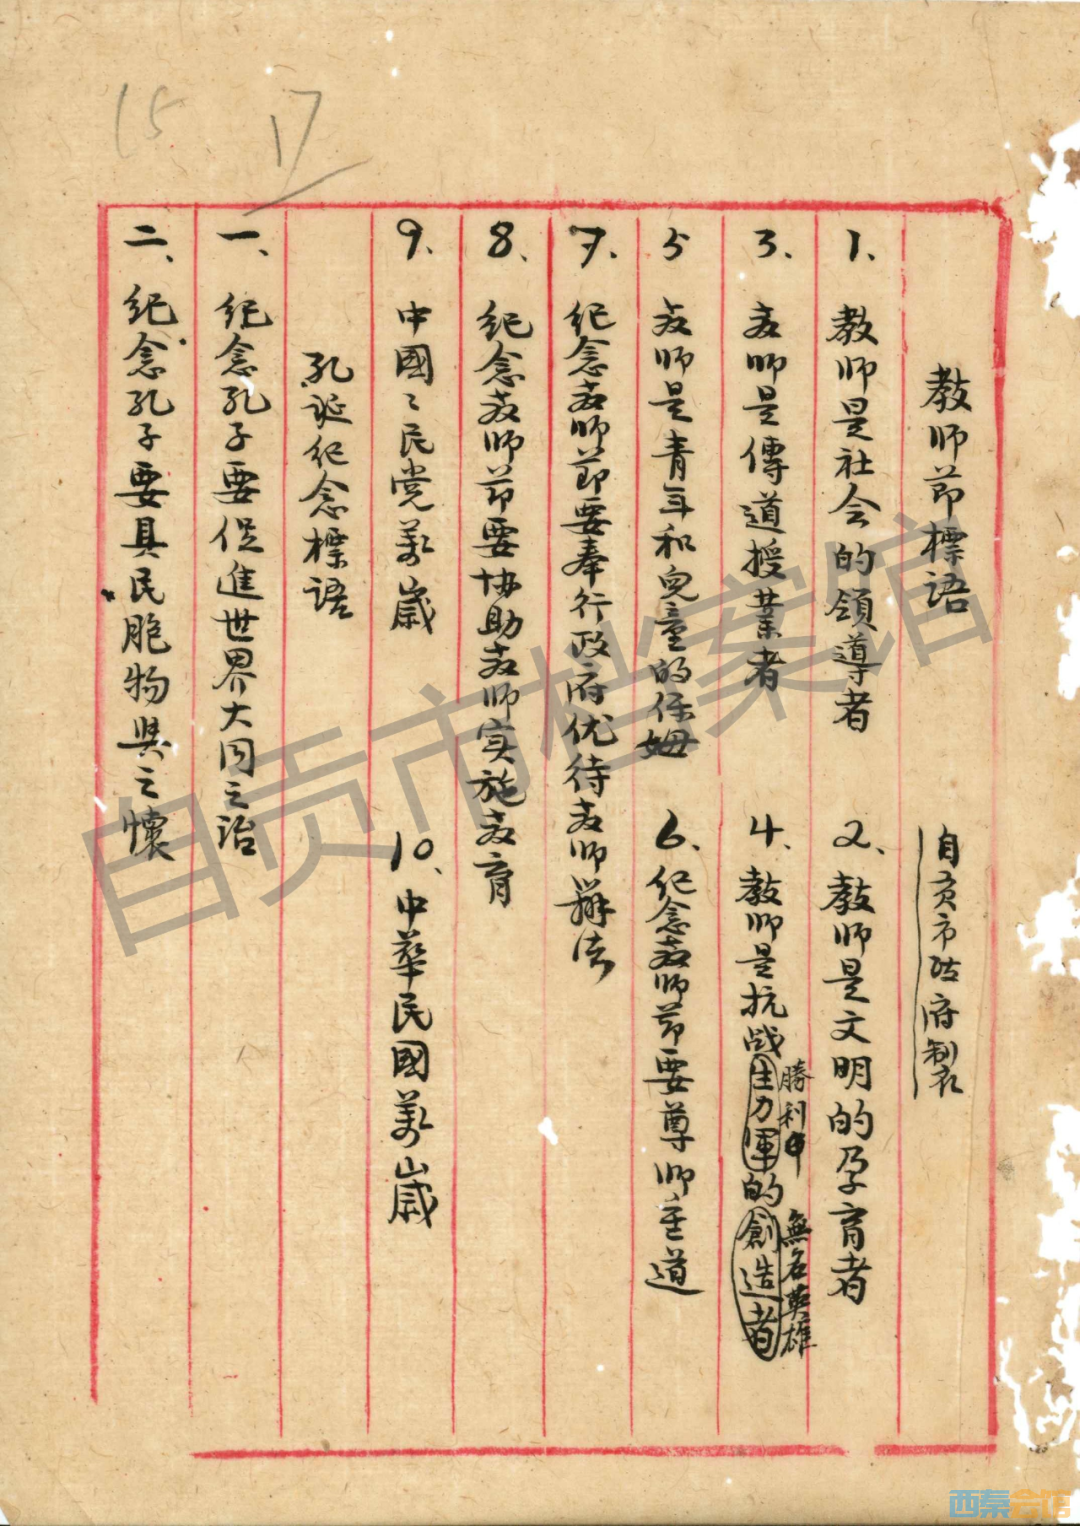 15 17
教师節標語
自贡市政府製
1、教师是社会的領導者
2、教师是文明的孕育者
3、教师是傳道授業者
4、教师是抗战生力軍的創造者
勝利中
無名英雄
5 教师是青年和兒童的保姆
6、纪念教师節要尊师重道
7、纪念教师節要奉行政府优待教师辦法
8、纪念教师節要协助教师实施教育
9、中國〻民党萬歲
10、中華民國萬歲
孔诞纪念標語
一、纪念孔子要促進世界大同之治
二、纪念孔子要具民胞物與之懷
自贡市档案馆
西秦会馆